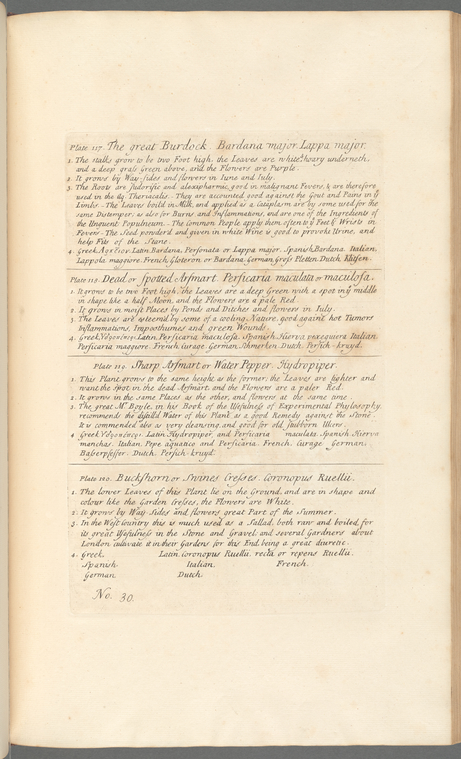 Plate 117. The great Burdock. Bardana major. Lappa major.
1. The stalks grow to be two Foot high, the Leaves are white & hoary underneth,
and a deep grass Green above, and the Flowers are Purple.
2. It grows by Way-sides and flowers in Iune and Iuly.
3. The Roots are Sudorific and alexapharmic, good in malignant Fevers, & are therefore
used in the Aq. Theriacalis. They are accounted good against the Gout and Pains in ye
Limbs. The Leaves boil'd in Milk, and applied as a Cataplasm are by some used for the
same Distemper; as also for Burns and Inflammations, and are one of the Ingredients of
the Unguent: Populneum. The common People apply them often to ye Feet & Wrists in
Fevers. The Seed powder'd and given in white Wine is good to provoke Urine, and
help Fits of the Stone.
4. Greek, Latin, Bardana, Personata or Lappa major. Spanish, Bardana. Italian,
Lappola maggiore. French, Gloteron or Bardana. German, Gross Pletten. Dutch, Klissen.
Plate 118. Dead or Spotted Arssmart. Persicaria maculata or maculosa.
1. It grows to be two Foot high, the Leaves are a deep Green with a spot in ye middle
in shape like a half Moon, and the Flowers are a pale Red.
2. It grows in moist Places by Ponds and Ditches and flowers in Iuly.
3. The Leaves are esteem'd by some of a cooling Nature, good against hot Tumors
Inflammations, Imposthumes and green Wounds.
4. Greek, Latin, Persicaria maculosa. Spanish, Hierva pexeguera. Italian,
Persicaria maggiore. French, Curage. German, Dutch, Persich-kruyd.
Plate 119. Sharp Arssmart or Water Pepper. Hydropiper.
1. This Plant grows to the same height as the former; the Leaves are lighter and
want the spot in the dead Arssmart and the Flowers are a paler Red.
2. It grows in the same Places as the other, and flowers at the same time.
3. The great Mr. Boyle, in his Book of the Usefulness of Experimental Phylosophy,
recommends the distill'd Water of this Plant as a good Remedy against the Stone.
It is commended also as very cleansing, and good for old, stubborn Ulcers.
4. Greek, Latin, Hydropiper, and Persicaria maculata. Spanish, Hierva
manchas. Italian, Pepe aquatico and Persicaria. French, Curage. German,
Dutch, Persich-kruyd.
Plate 120. Buckshorn or Swines Cresses. Coronopus Ruellii.
1. The lower Leaves of this Plant lie on the Ground, and are in shape and
colour like the Garden Cresses, the Flowers are White.
2. It grows by Way-Sides and flowers great Part of the Summer.
3. In the West Country this is much used as a Sallad, both raw and boiled, for
its great Usefulness in the Stone and Gravel; and several Gardners about
London cultivate it in their Gardens for this End, being a great diuretic.
4. Greek, Latin, Coronopus Ruellii, recta or repens Ruellii.
Spanish, Italian, French,
German, Dutch,
No. 30.